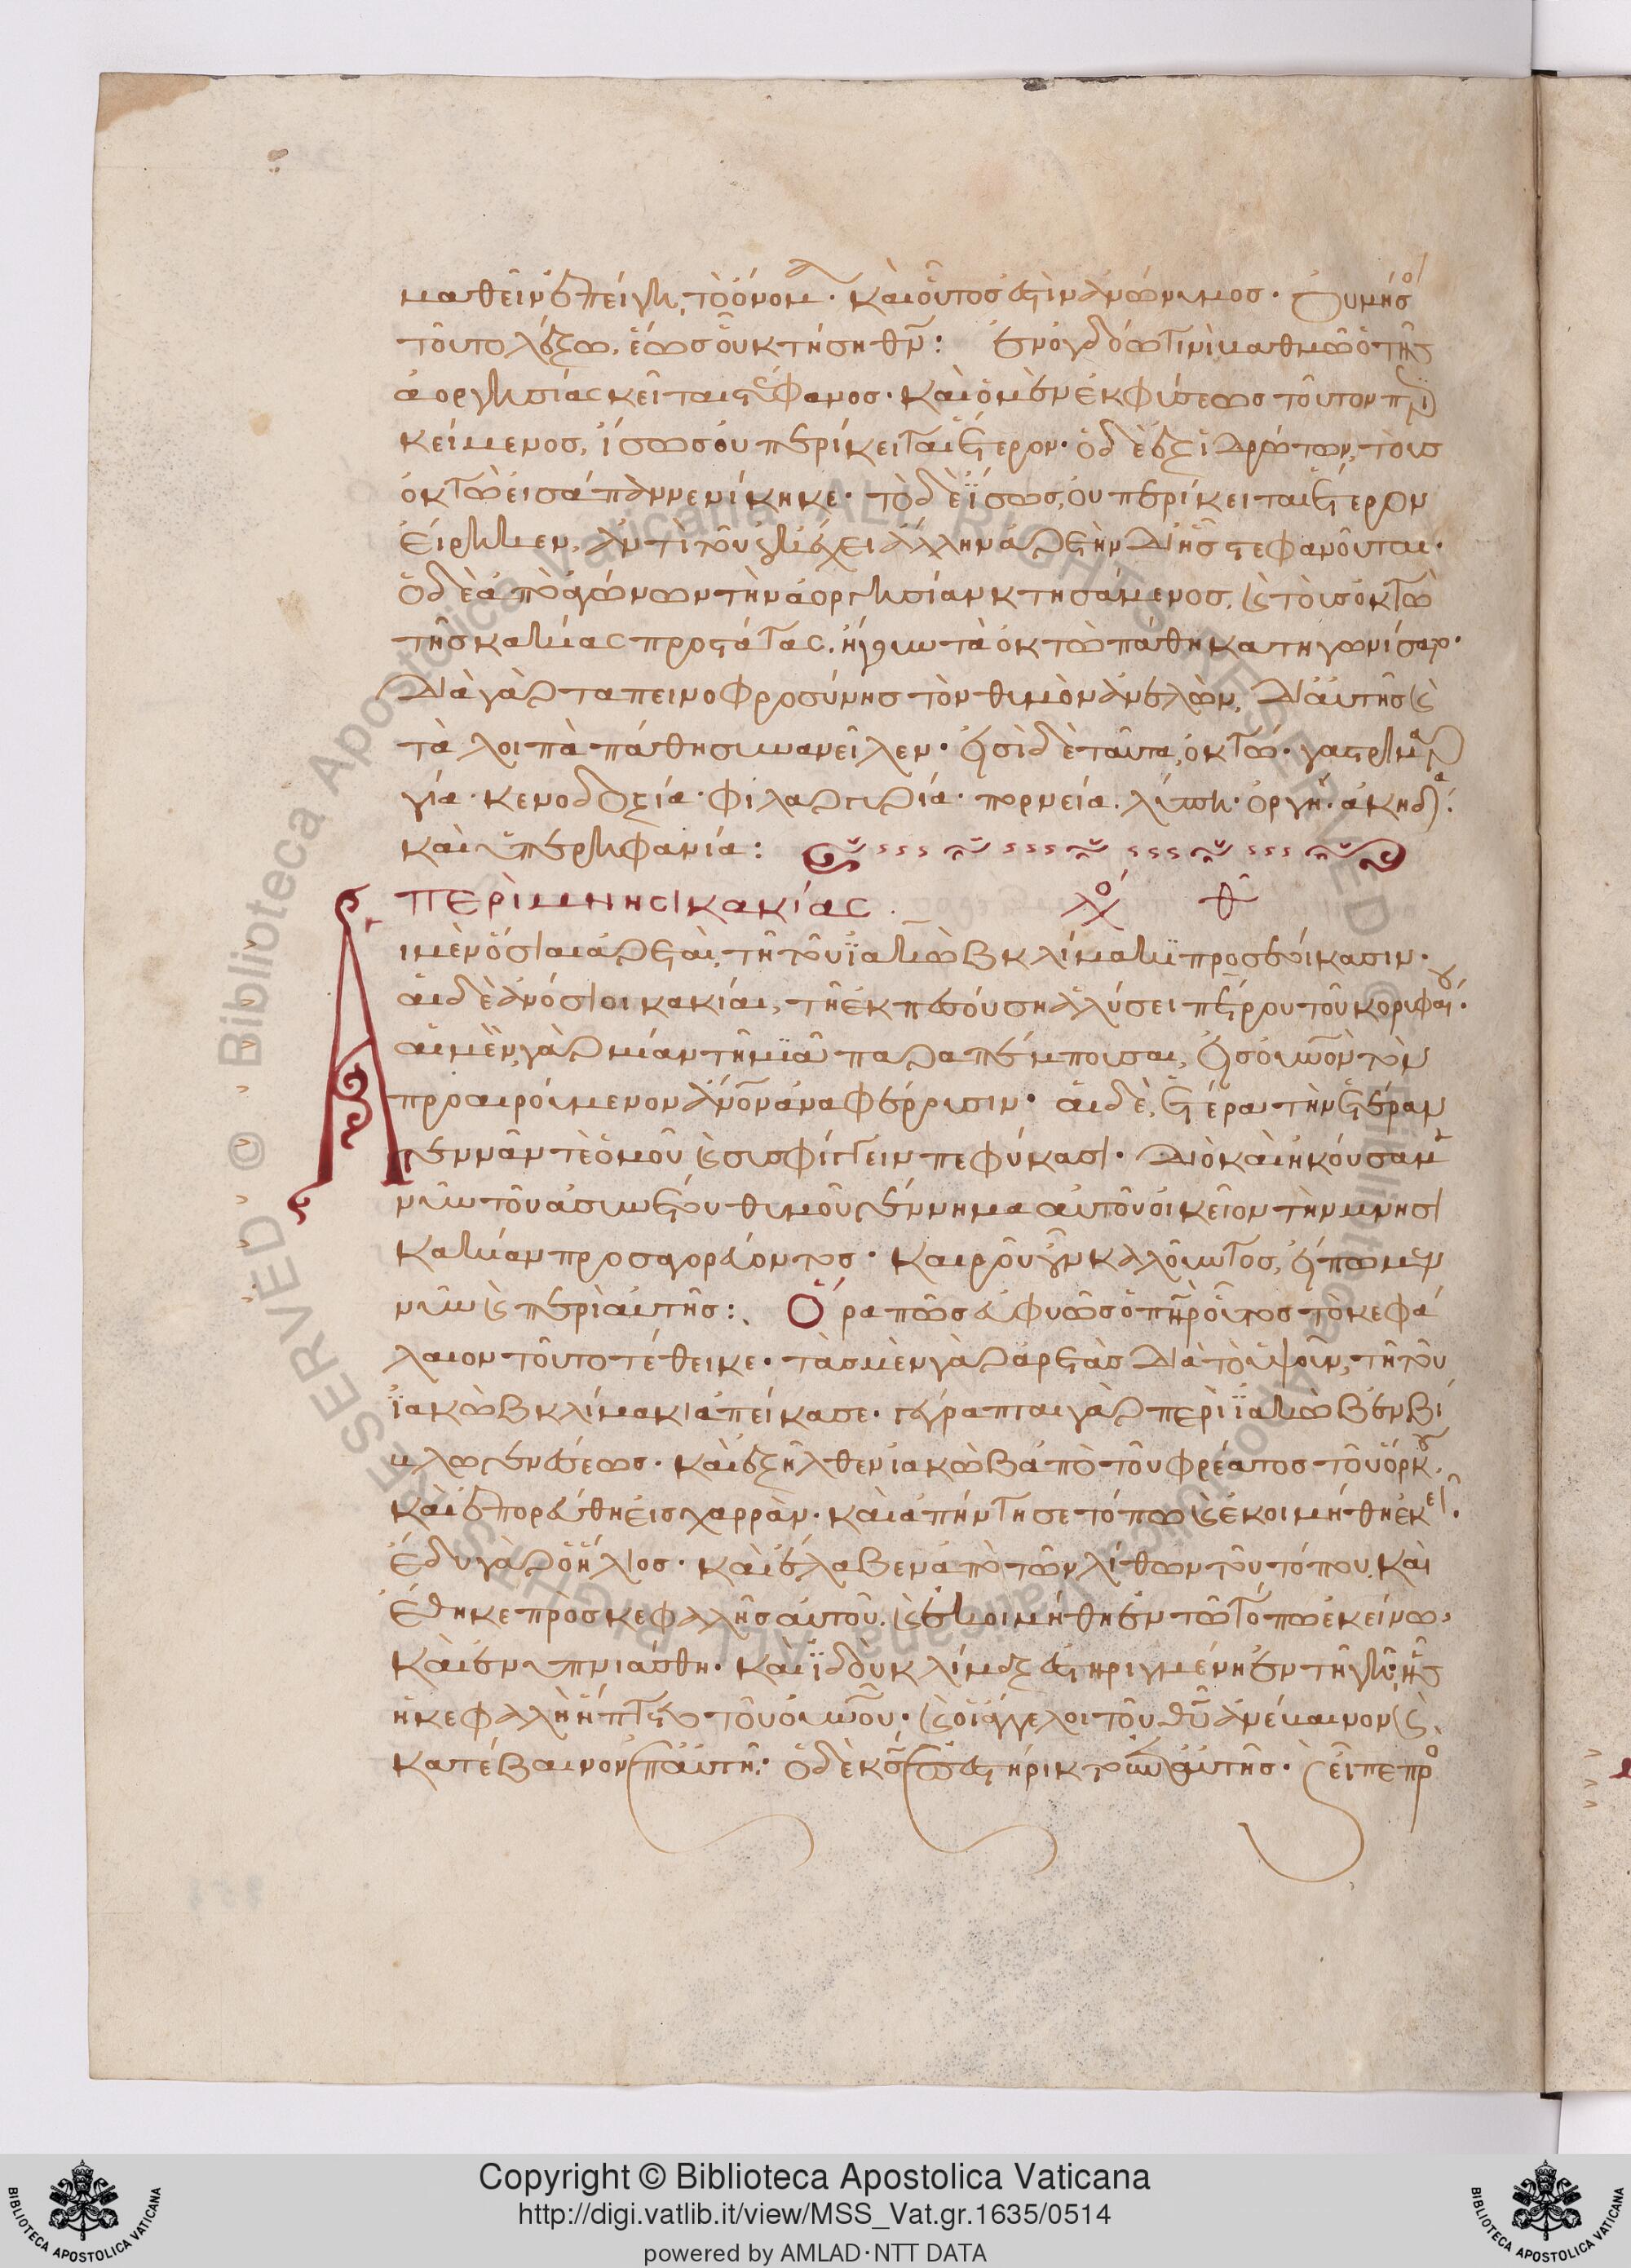 μαθεῖν ἐπείγη, τὸ ὄνομα. καὶ οὗτος ἐστὶν ἀνώνυμος. οὐ μή σοι
τοῦτο λέξω, ἕως οὗ κτήσῃ θν̅: ἐν ὀγδόω τινὶ βαθμῶ ὁ τῆς
ἀοργησίας κεῖται στέφανος. καὶ ὁ μὲν ἐκ φύσεως τοῦτον περι
κείμενος, ἴσως οὐ περίκειται ἕτερον. ὁ δὲ ἐξ ἱδρώτων, τοὺς
ὀκτὼ εἰσάπαν νενίκηκε. τὸ δὲ ἴσως, οὐ περίκειται ἕτερον
εἴρηκεν, ἀντὶ τοῦ οὐκ ἔχει ἄλλην ἀρετὴν δι' ἧς στεφανοῦται.
ὁ δὲ ἀπὸ ἀγώνων τὴν ἀοργησίαν κτησάμενος, καὶ τοὺς ὀκτὼ
τῆς κακίας προστάτας, ἤγουν τὰ ὀκτὼ πάθη κατηγωνίσατο.
διὰ γὰρ ταπεινοφροσύνης τὸν θυμὸν ἀνελὼν, δι' αὐτῆς καὶ
τὰ λοιπὰ πάθη συνανεῖλεν. εἰσὶ δὲ ταῦτα, ὀκτώ. γαστριμαρ
γία. κενοδοξία. φιλαργυρία. πορνεία. λύπη. ὀργή. ἀκηδία.
καὶ ὑπερηφανία:
περὶ μνησικακίας λόγος θ
Αἱ μὲν ὅσιαι ἀρεταὶ, τῇ τοῦ ἰακὼβ κλίμακι προσεοίκασιν.
αἱ δὲ ἀνόσιοι κακίαι, τῇ ἐκπεσούσῃ ἁλύσει πέτρου τοῦ κορυφαίου.
αἱ μὲν γὰρ μίαν τῇ μιᾶ παραπέμπουσαι, εἰς οὐνον τὸν
προαιρούμενον ἀνον ἀναφέρουσιν. αἱ δὲ, ἑτέρα τὴν ἑτέραν
γεννᾶν τὲ ὁμοῦ καὶ συσφίγγειν πεφύκασι. διὸ καὶ ἠκούσαμεν
νῦν τοῦ ἀσυνέτου θυμοῦ γέννημα αὐτοῦ οἰκεῖον τὴν μνησι
κακίαν προσαγορεύοντος. καιροῦ οὖν καλοῦντος, εἴπωμεν
νῦν καὶ περὶ αὐτῆς: Ὅρα πῶς εὐφυῶς ὁ πηρ οὗτος τὸ κεφά
λαιον τοῦτο τέθεικε. τὰς μὲν γὰρ ἀρετὰς διὰ τὸ ὑψοῦν, τῇ τοῦ
ἰακὼβ κλίμακι ἀπείκασε. γέγραπται γὰρ περὶ ἰακὼβ ἐν βί
βλω γενέσεως. καὶ ἐξῆλθεν ἰακὼβ ἀπὸ τοῦ φρέατος τοῦ ὅρκου,
καὶ ἐπορεύθη εἰς χαρράν. καὶ ἀπήντησε τόπω καὶ ἐκοιμήθη ἐκεῖ.
ἔδυ γὰρ ὁ ἥλιος. καὶ ἔλαβεν ἀπὸ τῶν λίθων τοῦ τόπου, καὶ
ἔθηκε πρὸς κεφαλῆς αὐτοῦ, καὶ ἐκοιμήθη ἐν τῶ τόπω ἐκείνω,
καὶ ἐνυπνιάσθη. καὶ ἰδοὺ κλίμαξ ἐστηριγμένη ἐν τῇ γῆ, ἧς
ἡ κεφαλὴ ἥπτετο τοῦ οὐνου. καὶ οἱ ἄγγελοι τοῦ θυ ἀνέβαινον καὶ
κατέβαινον ἐπ' αὐτῆ. ὁ δὲ κς ἐπεστήρικτο ἐπ' αὐτῆς. καὶ εἶπε προ
Copyright © Biblioteca Apostolica Vaticana
http://digi.vatlib.it/view/MSS_Vat.gr.1635/0514
powered by AMLAD·NTT DATA